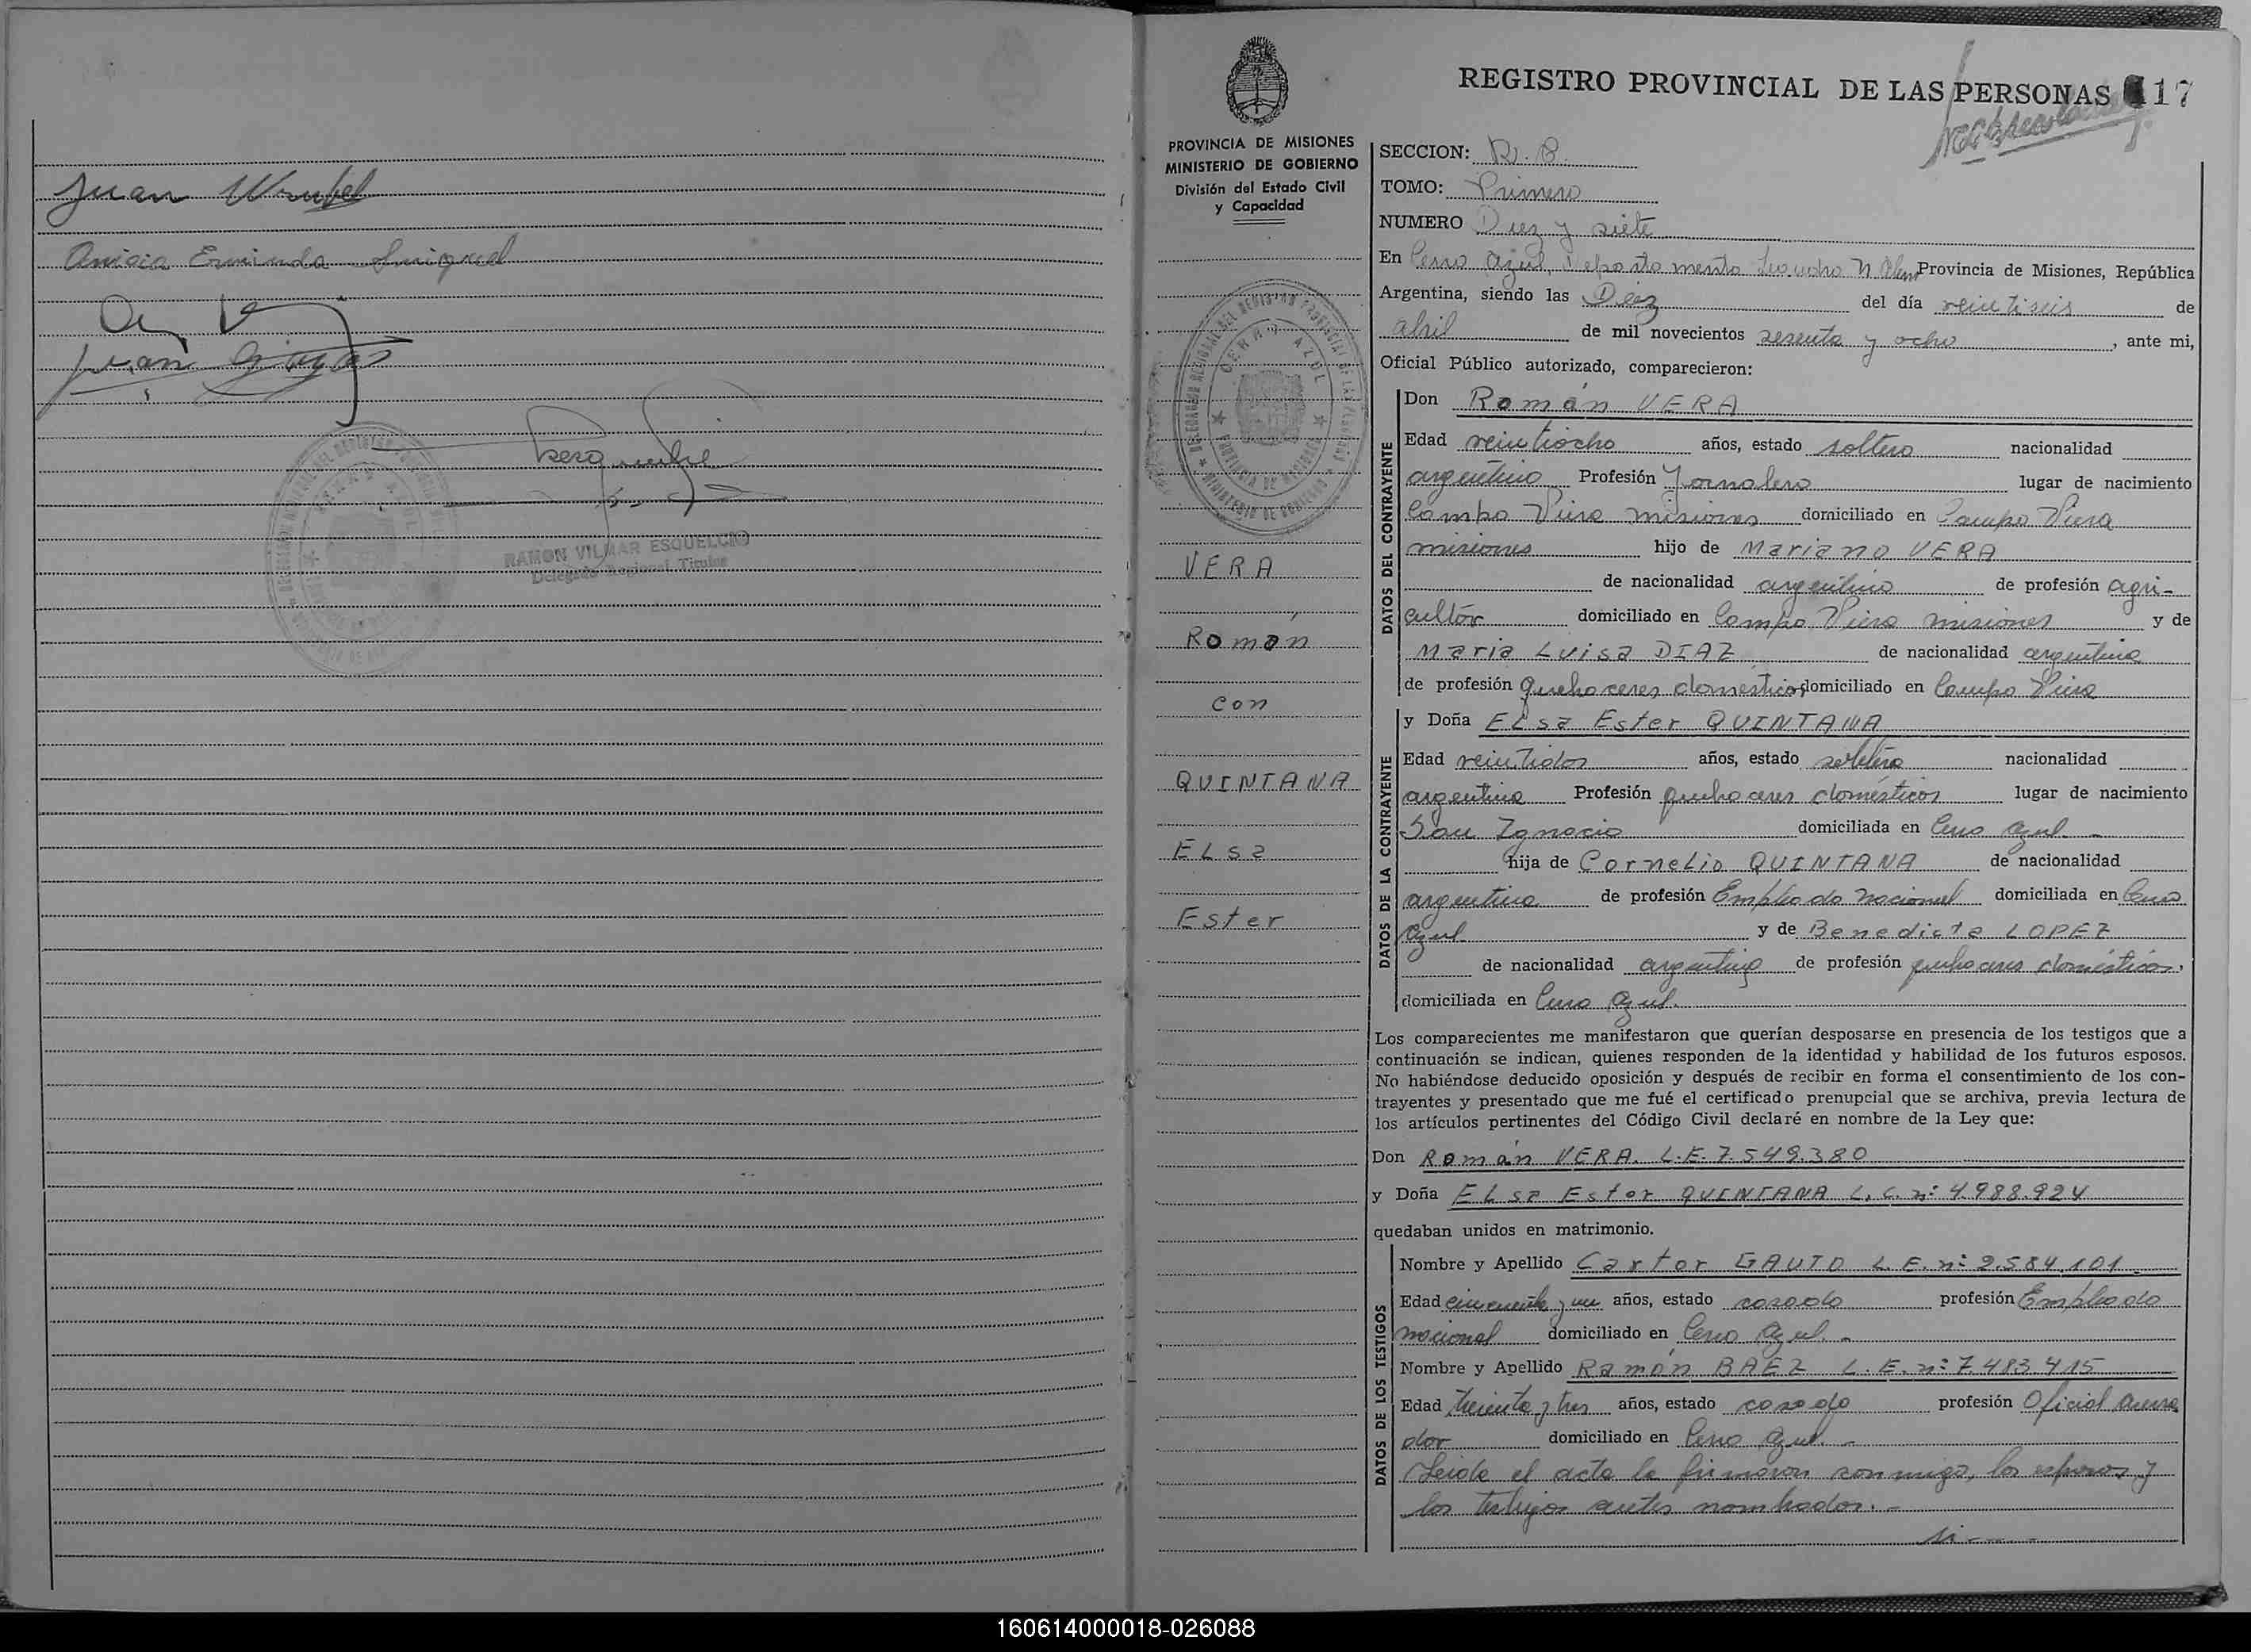 Juan Wrubel
Anicia Erminda
Juan
RAMON VILMAR ESQUELCIO
Delegado Regional Titular
REGISTRO PROVINCIAL DE LAS PERSONAS 17
PROVINCIA DE MISIONES
MINISTERIO DE GOBIERNO
División del Estado Civil
y Capacidad
VERA
Román
con
QUINTANA
Elsa
Ester
SECCION:
TOMO: Primero
NUMERO Diez y siete
En Cerro Azul, Departamento Leandro N. Alem Provincia de Misiones, República
Argentina, siendo las Diez del día veintiseis de
abril de mil novecientos sesenta y ocho, ante mi,
Oficial Público autorizado, comparecieron:
DATOS DEL CONTRAYENTE
Don Román VERA
Edad veintiocho años, estado soltero nacionalidad
argentino Profesión Jornalero lugar de nacimiento
Campo Viera misiones domiciliado en Campo Viera
misiones hijo de Mariano VERA
de nacionalidad argentino de profesión agri-
cultor domiciliado en Campo Viera misiones y de
Maria Luisa DIAZ de nacionalidad argentina
de profesión quehaceres domesticos domiciliado en Campo Viera
DATOS DE LA CONTRAYENTE
y Doña Elsa Ester QUINTANA
Edad veintidos años, estado soltera nacionalidad
argentina Profesión quehaceres domésticos lugar de nacimiento
San Ignacio domiciliada en Cerro Azul -
hija de Cornelio QUINTANA de nacionalidad
argentina de profesión Empleado nacional domiciliada en Cerro
Azul y de Benedicta LOPEZ
de nacionalidad argentina de profesión quehaceres domésticos,
domiciliada en Cerro Azul.
Los comparecientes me manifestaron que querían desposarse en presencia de los testigos que a
continuación se indican, quienes responden de la identidad y habilidad de los futuros esposos.
No habiéndose deducido oposición y después de recibir en forma el consentimiento de los con-
trayentes y presentado que me fué el certificado prenupcial que se archiva, previa lectura de
los artículos pertinentes del Código Civil declaré en nombre de la Ley que:
Don Román VERA. L.E. 7.549.380
y Doña Elsa Ester QUINTANA L.C. n: 4.988.924
quedaban unidos en matrimonio.
DATOS DE LOS TESTIGOS
Nombre y Apellido Cartor GAUTO L.E. n: 2.584.101
Edad cincuenta y un años, estado casado profesión Empleado
nacional domiciliado en Cerro Azul. -
Nombre y Apellido Ramón BAEZ L.E. n: 7.483.415
Edad treinta y tres años, estado casado profesión Oficial
dor domiciliado en Cerro Azul. -
Leida el acta la firmaron conmigo, los esposos y
los testigos antes nombrados. -
160614000018-026088